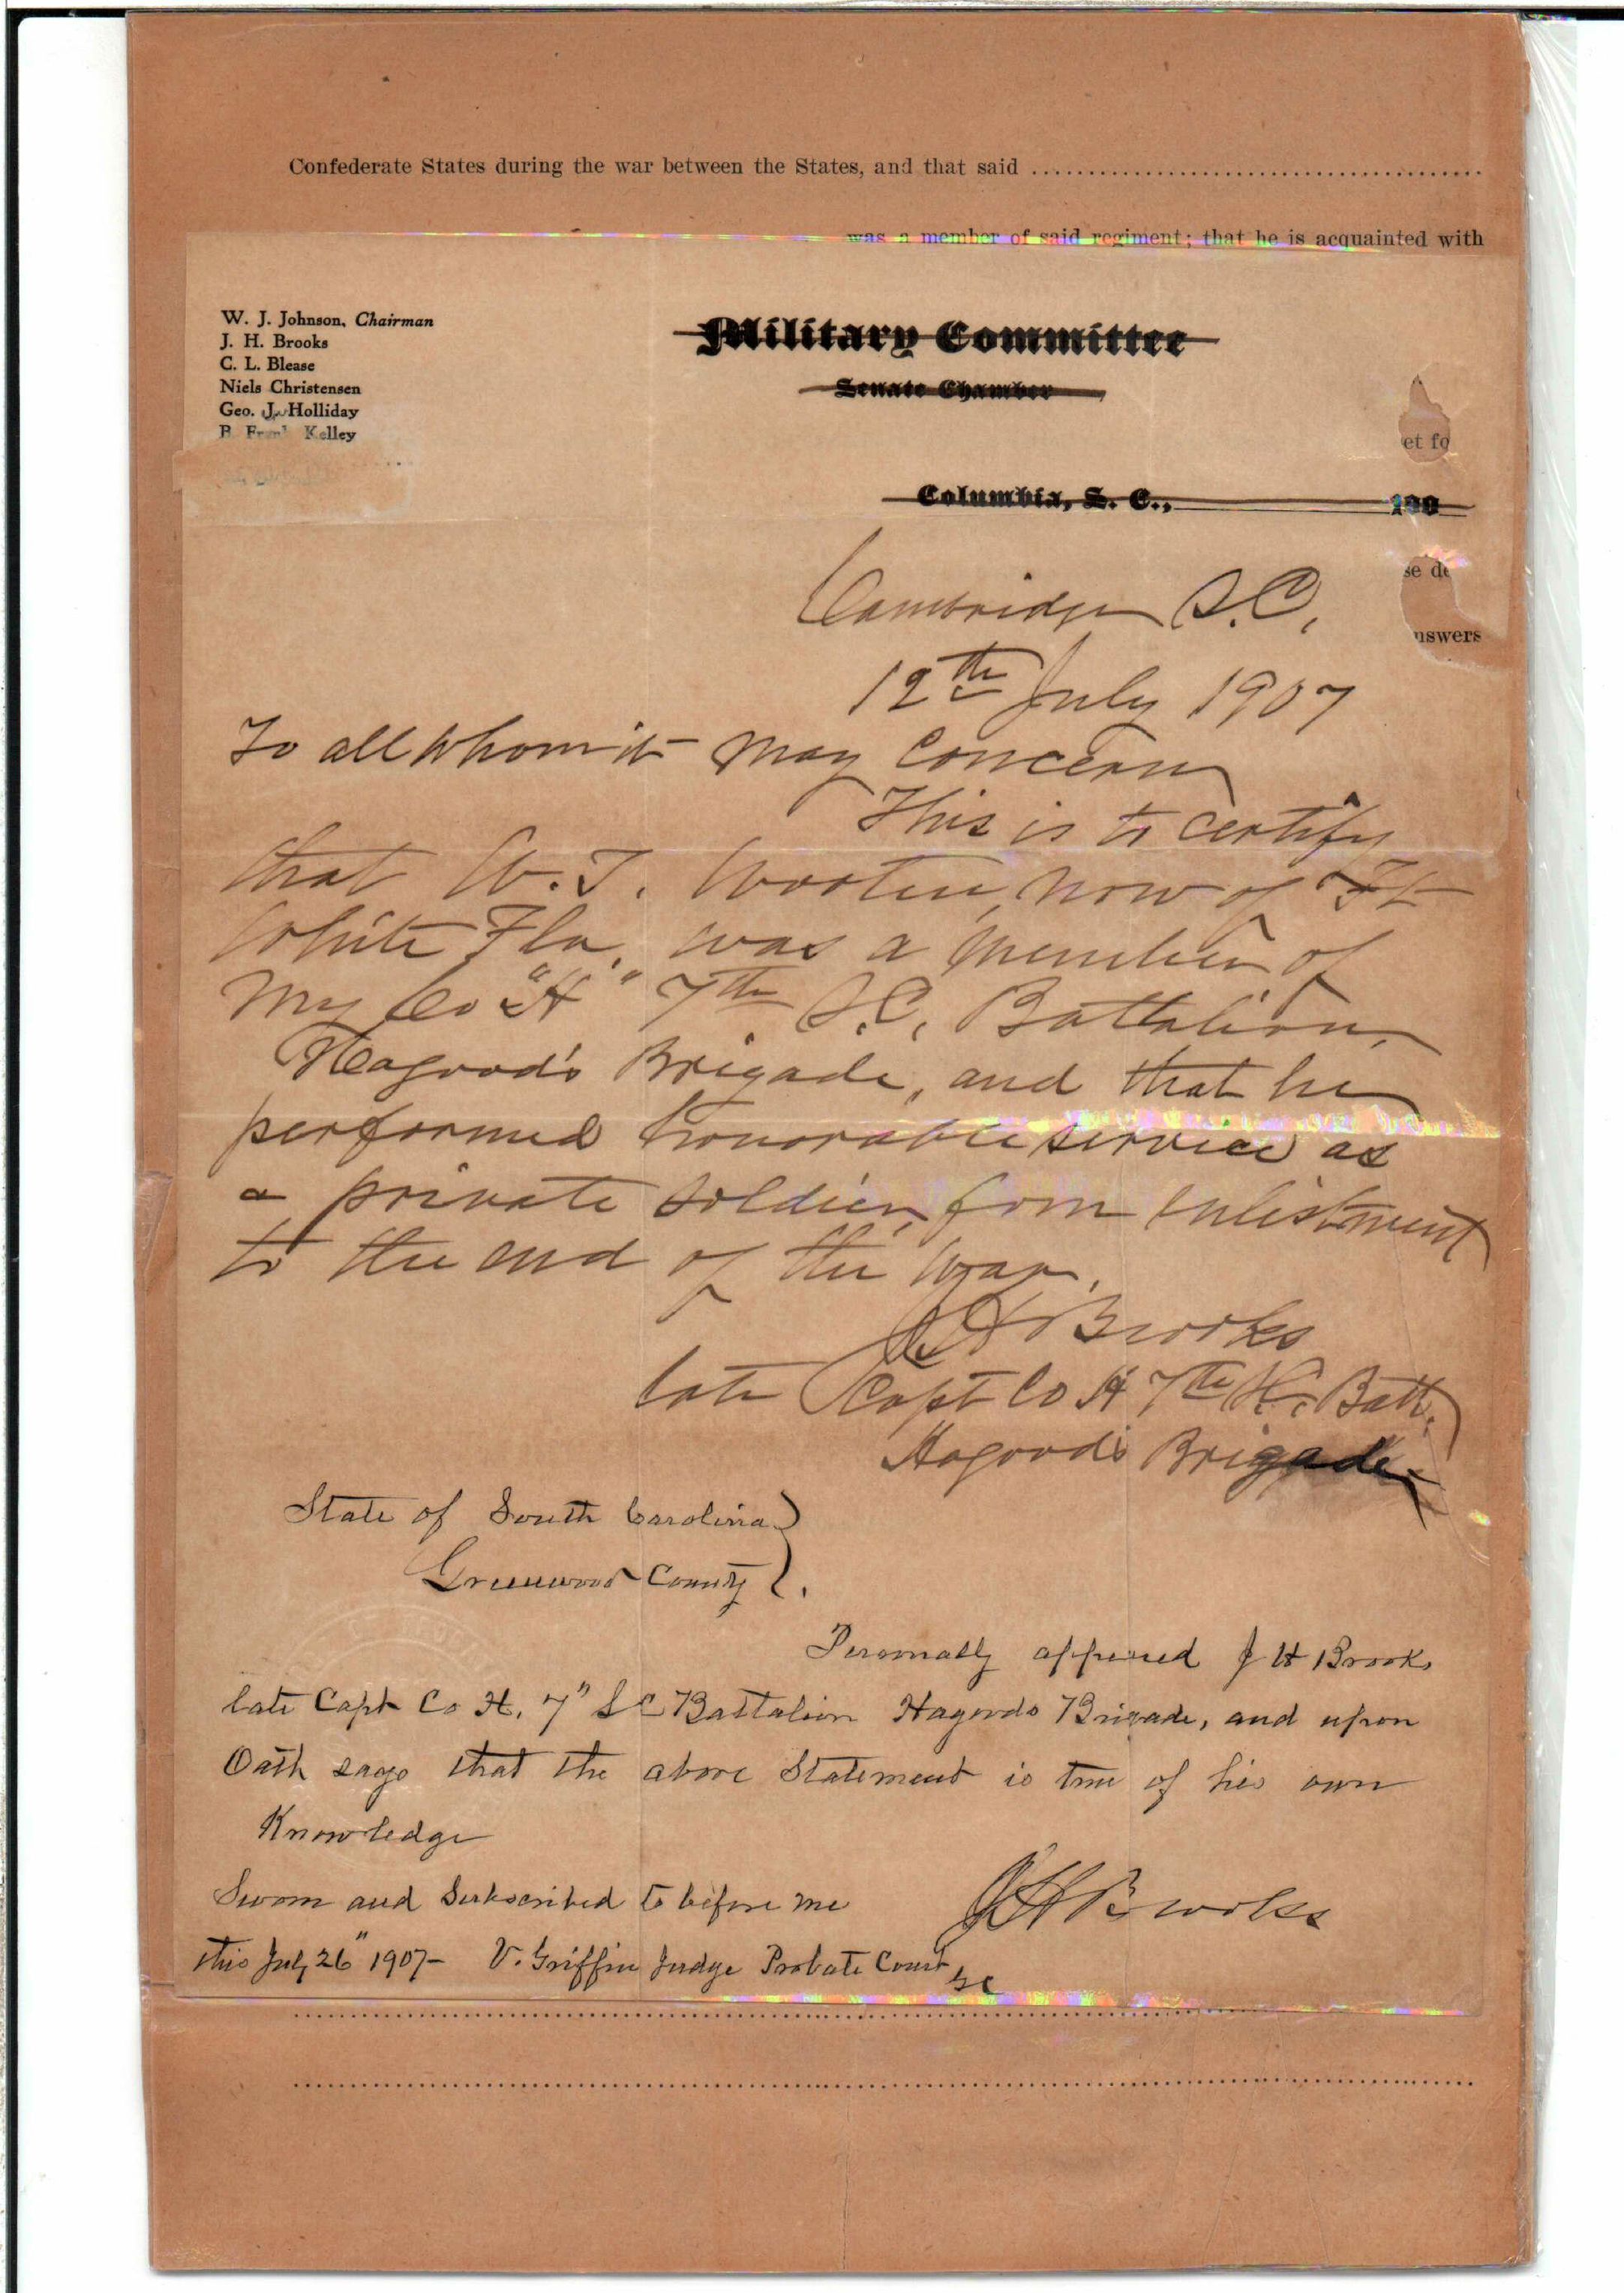 Confederate States during the war between the States, and that said
was a member of said regiment; that he is acquainted with
W. J. Johnson, Chairman
J. H. Brooks
C. L. Blease
Niels Christensen
Geo. J. Holliday
B. Frank Kelley
Military Committee
Senate Chamber
et fo
Columbia, S. C., 190
se de
Cambridge S.C.
nswers
12th July 1907
To all whom it may concern
This is to certify
that W. T. Wooten, now of Ft
White Fla, was a member of
my Co "H" 7th S.C. Battalion,
Hagood's Brigade, and that he
performed honorable service as
a private soldier, from enlistment
to the end of the war.
J H Brooks
late Capt Co H 7th S.C. Batt.
Hagood's Brigade
State of South Carolina
Greenwood County
Personally appeared J H Brooks
late Capt Co H, 7" S C Battalion Hagoods Brigade, and upon
Oath says that the above Statement is true of his own
Knowledge
Sworn and Subscribed to before me
J H Brooks
this July 26" 1907- V. Griffin Judge Probate Court
SC